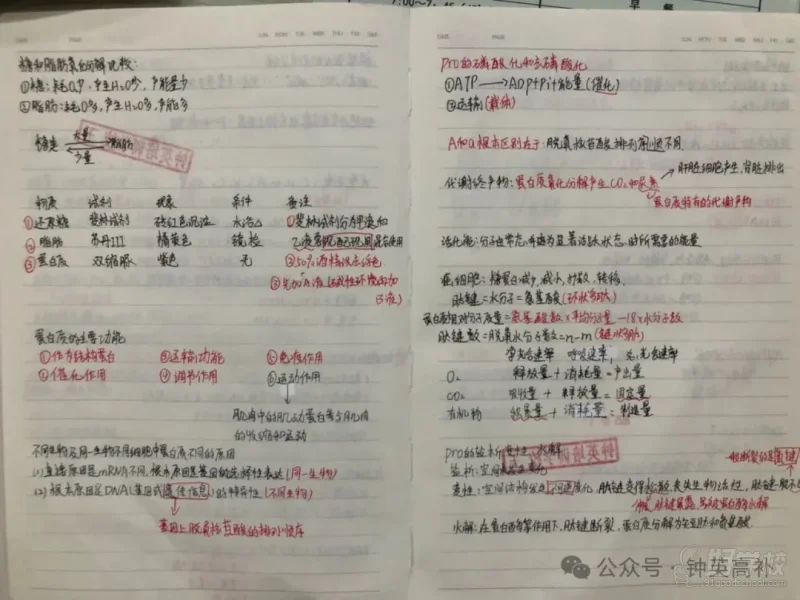 糖和脂肪氧化分解比较:
①糖:耗O₂少,产生H₂O少,产能量少
②脂肪:耗O₂多,产生H₂O多,产能多
糖类 大量 脂肪
少量
物质 试剂 现象 条件 备注
①还原糖 斐林试剂 砖红色沉淀 水浴△ ①斐林试剂分为甲液和
②脂肪 苏丹III 橘黄色 镜检 乙液,现配现用混合使用
③蛋白质 双缩脲 紫色 无 ②50%酒精洗去浮色
③先加A液
B液)
蛋白质的主要功能
①作为结构蛋白 ③运输功能 ⑤免疫作用
②催化作用 ④调节作用 ⑥运动作用
肌肉中的肌动蛋白参与肌肉
的收缩和运动
不同生物及同一生物不同细胞中蛋白质不同的原因
(1)直接原因是mRNA不同,根本原因是基因的选择性表达(同一生物)
(2)根本原因是DNA(基因或遗传信息)的特异性(不同生物)
基因上脱氧核苷酸的排列顺序
pro的磷酸化和去磷酸化
①ATP→ADP+Pi+能量(催化)
②运输(载体)
A和a根本区别在于:脱氧核苷酸排列顺序不同.
肝脏细胞产生,肾脏排出
代谢终产物:蛋白质氧化分解产生CO₂和尿素
蛋白质特有的代谢产物
活化能:分子由常态转变为显著活跃状态时所需要的能量
癌细胞:糖蛋白减少,减小,扩散,转移.
肽键=水分子=氨基酸(环状多肽)
蛋白质相对分子质量=氨基酸数×平均分子量-18×水分子数
肽键数=脱氧水分子数=n-m(链状多肽)
净光合速率 呼吸速率, 总光合速率
O₂ 释放量+消耗量=产生量
CO₂ 吸收量+释放量=固定量
有机物 积累量+消耗量=制造量
pro的盐析 变性, 水解
盐析:空间
变性:空间结构发生不可逆变化,肽链变得松散,丧失生物活性,肽键一般不
水解:在蛋白酶等作用下,肽键断裂,蛋白质分解为多肽和氨基酸.
钟英高补
公众号·钟英高补
好学校